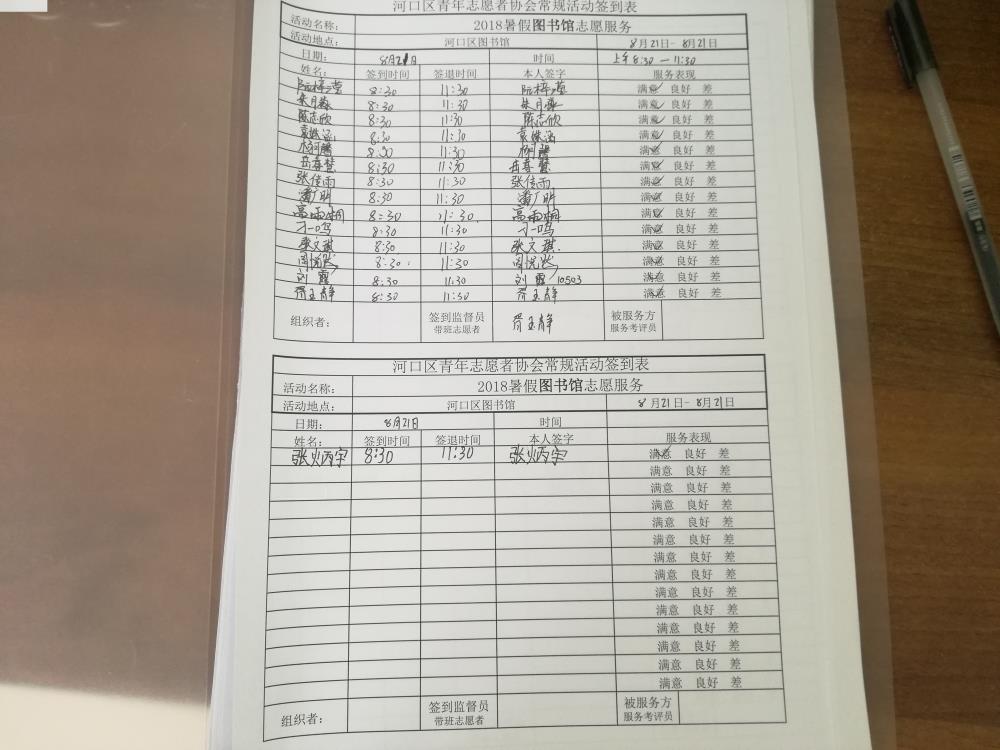 河口区青年志愿者协会常规活动签到表
活动名称： 2018暑假图书馆志愿服务
活动地点： 河口区图书馆 8月21日- 8月21日
日期： 8月21日 时间 上午8:30 — 11:30
姓名： 签到时间 签退时间 本人签字 服务表现
阮梓莹 8:30 11:30 阮梓莹 满意 良好 差
朱月 8:30 11:30 朱月 满意 良好 差
陈志欣 8:30 11:30 陈志欣 满意 良好 差
袁姝涵 8:30 11:30 袁姝涵 满意 良好 差
杨 8:30 11:30 杨 满意 良好 差
岳春慧 8:30 11:30 岳春慧 满意 良好 差
张佳雨 8:30 11:30 张佳雨 满意 良好 差
潘广明 8:30 11:30 潘广明 满意 良好 差
高雨桐 8:30 11:30 高雨桐 满意 良好 差
刁一鸣 8:30 11:30 刁一鸣 满意 良好 差
张文琪 8:30 11:30 张文琪 满意 良好 差
周悦 8:30 11:30 周悦 满意 良好 差
刘露 8:30 11:30 刘露 10503 满意 良好 差
胥玉静 8:30 11:30 胥玉静 满意 良好 差
组织者： 签到监督员 带班志愿者 胥玉静 被服务方 服务考评员
河口区青年志愿者协会常规活动签到表
活动名称： 2018暑假图书馆志愿服务
活动地点： 河口区图书馆 8月21日- 8月21日
日期： 8月21日 时间
姓名： 签到时间 签退时间 本人签字 服务表现
张火炳宇 8:30 11:30 张火炳宇 满意 良好 差
满意 良好 差
满意 良好 差
满意 良好 差
满意 良好 差
满意 良好 差
满意 良好 差
满意 良好 差
满意 良好 差
满意 良好 差
满意 良好 差
满意 良好 差
满意 良好 差
满意 良好 差
组织者： 签到监督员 带班志愿者 被服务方 服务考评员